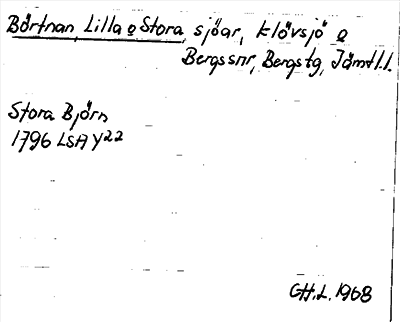 Börtnan, Lilla o Stora, sjöar, Klövsjö o
Bergs snr, Bergs tg, Jämtl.l.
Stora Björn
1796 LSA Y22
G.H.L. 1968